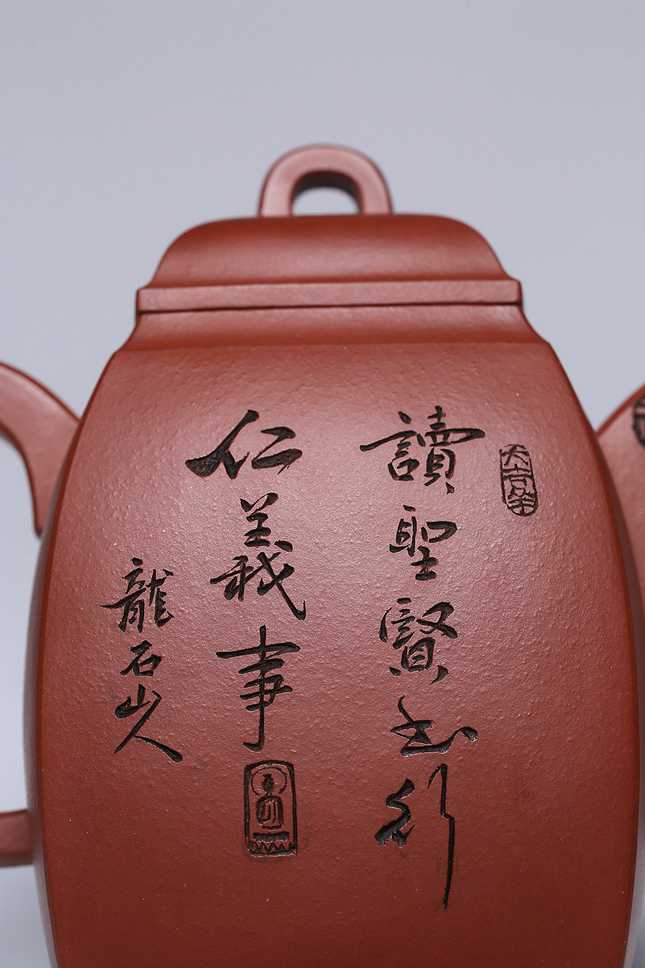 讀聖賢書行
仁義事
龍石山人